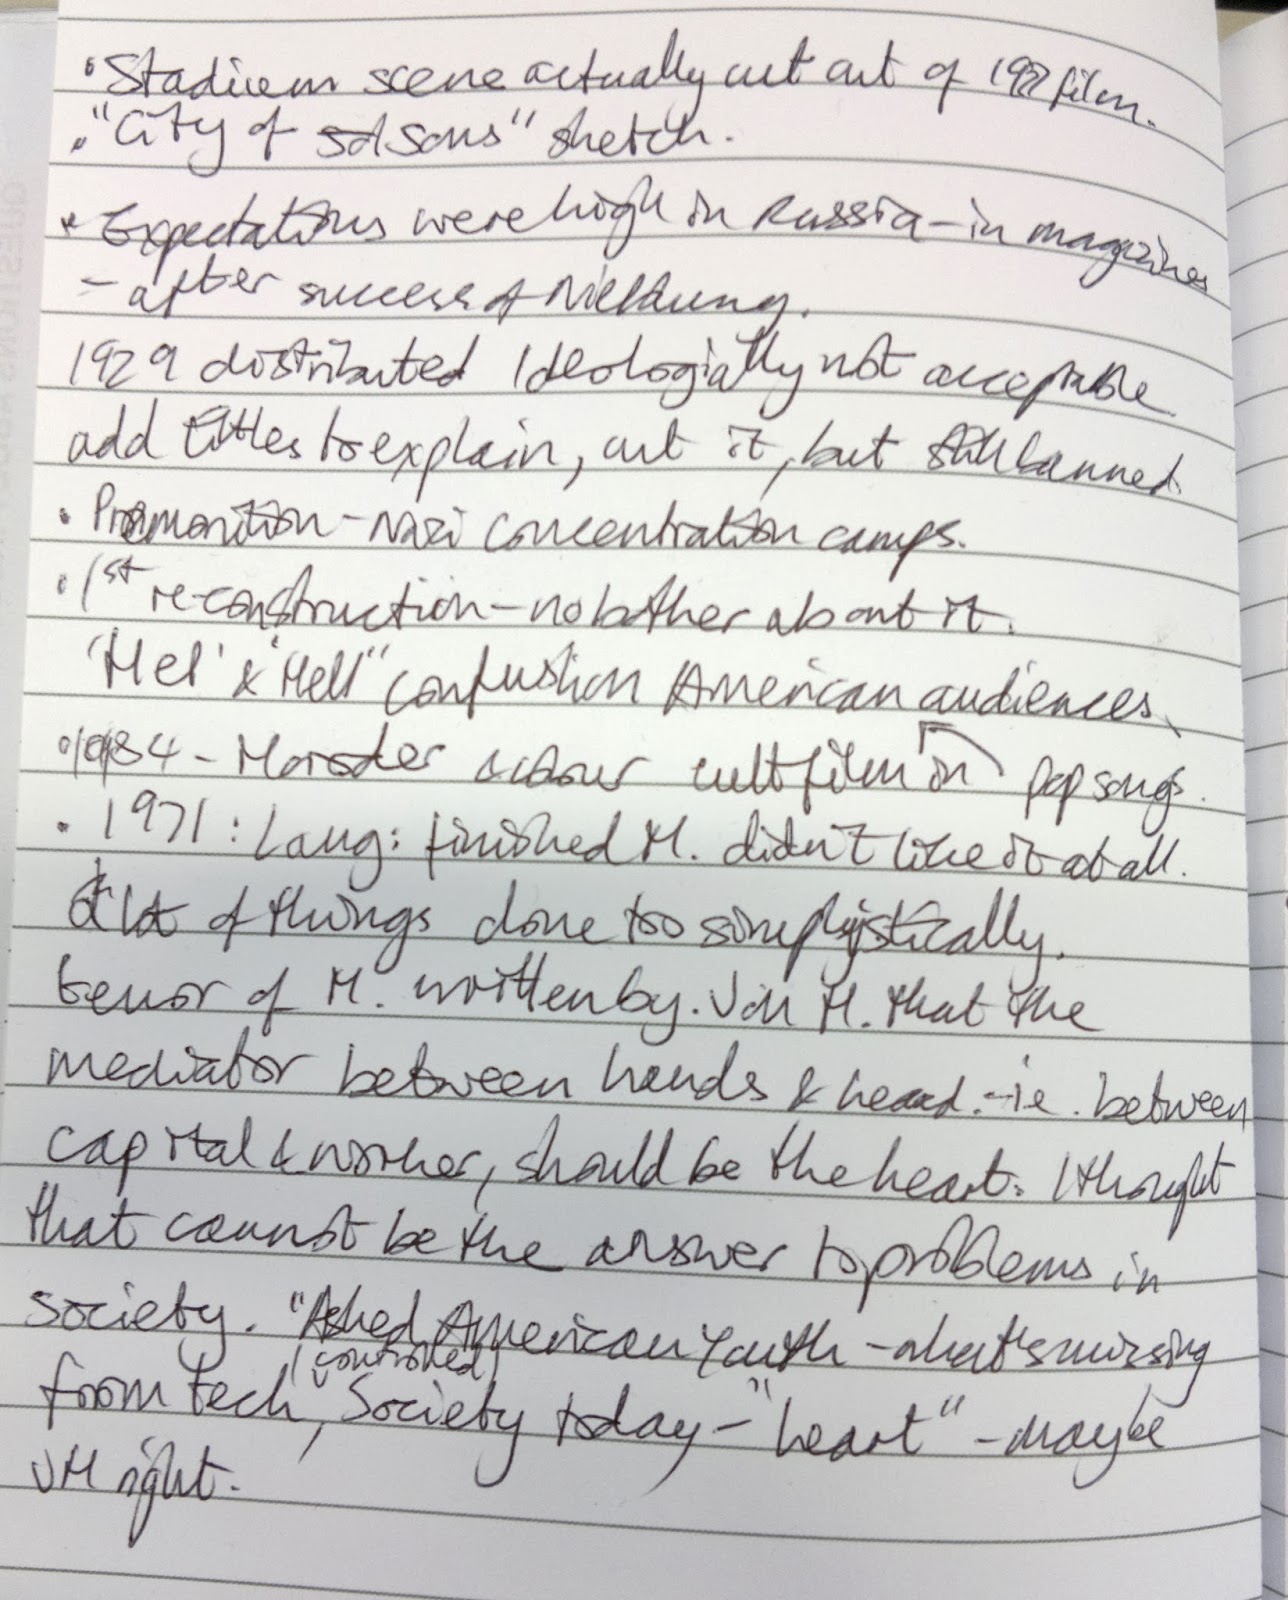 • Stadium scene actually cut out of 1927 film.
• "City of Sons" sketch.
* Expectations were high in Russia – in magazines
– after success of Nieblung.
1929 distributed Ideologially not acceptable
add titles to explain, cut it, but still banned.
• Premonition – Nazi concentration camps.
• 1st re-construction – no bother about it.
'Hel' & "Hell" confustion American audiences
• 1984 – Moroder colour cult film in pop songs.
• 1971: Lang: finished M. didn't like it at all.
A lot of things done too simplistically.
tenor of M. written by. Von H. that the
mediator between hands & head. – ie. between
capital & worker, should be the heart. I thought
that cannot be the answer to problems in
society. "Asked American Youth – what's missing
(controlled)
from tech, Society today – "heart" – maybe
VH right.